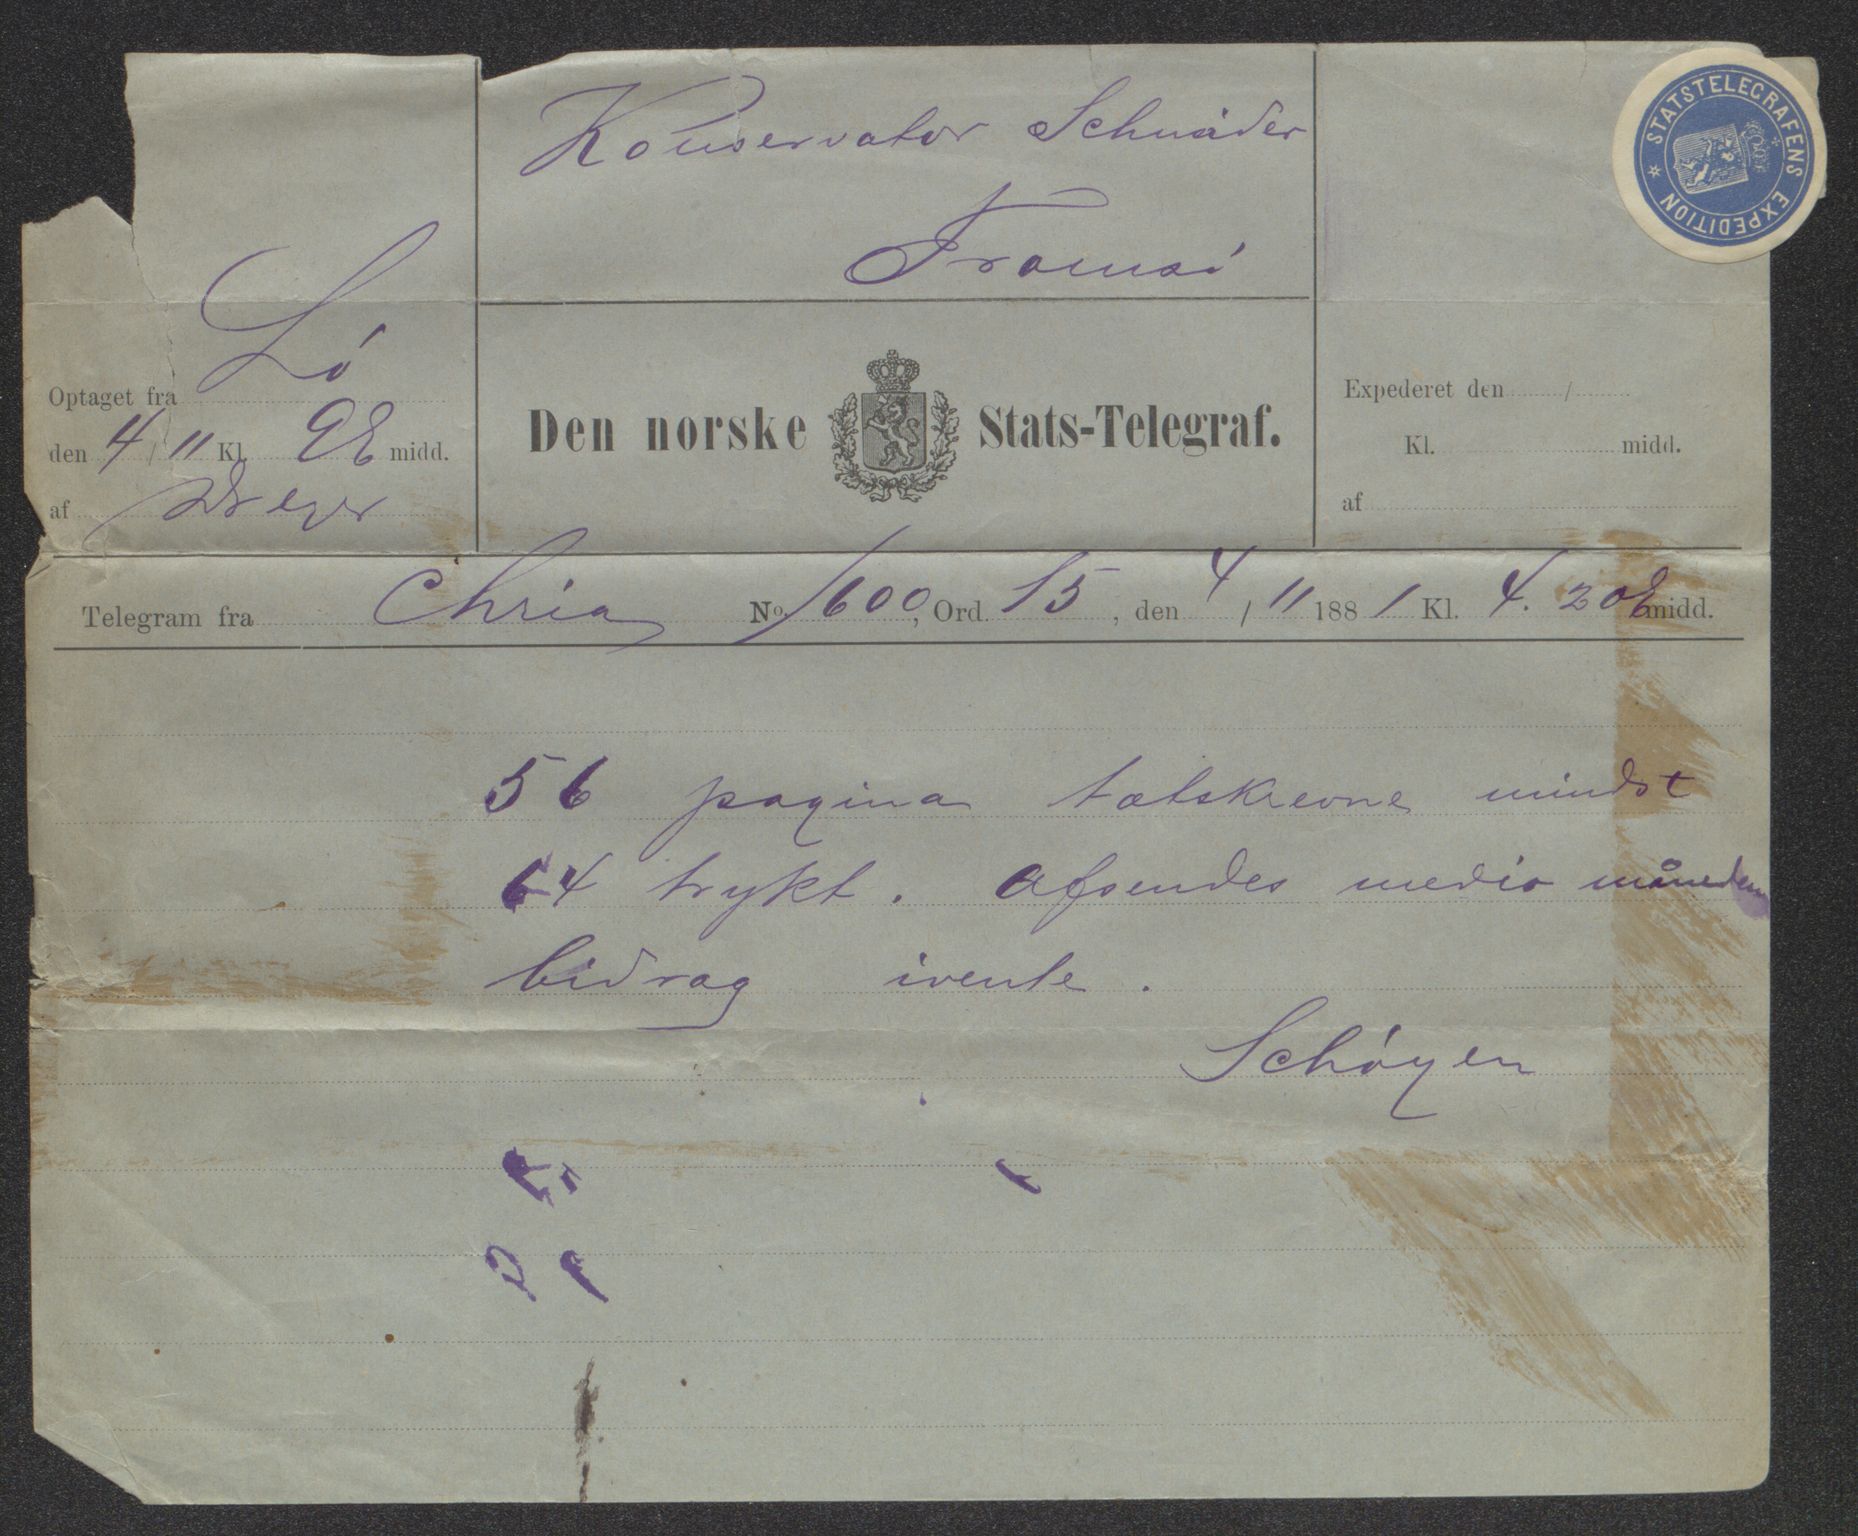 Konservator Schneider
Tromsø
STATSTELEGRAFENS EXPEDITION
Lö
Optaget fra
den 4/11 Kl. 9E midd.
af Dreyer
Den norske Stats-Telegraf.
Expederet den /
Kl. midd.
af
Telegram fra Chria No. 1600, Ord. 15, den 4/11 1881 Kl. 4.20E midd.
56 pagina tætskrevne mindst
64 trykt. Afsendes medio måneden
bidrag ivente.
Schöyen